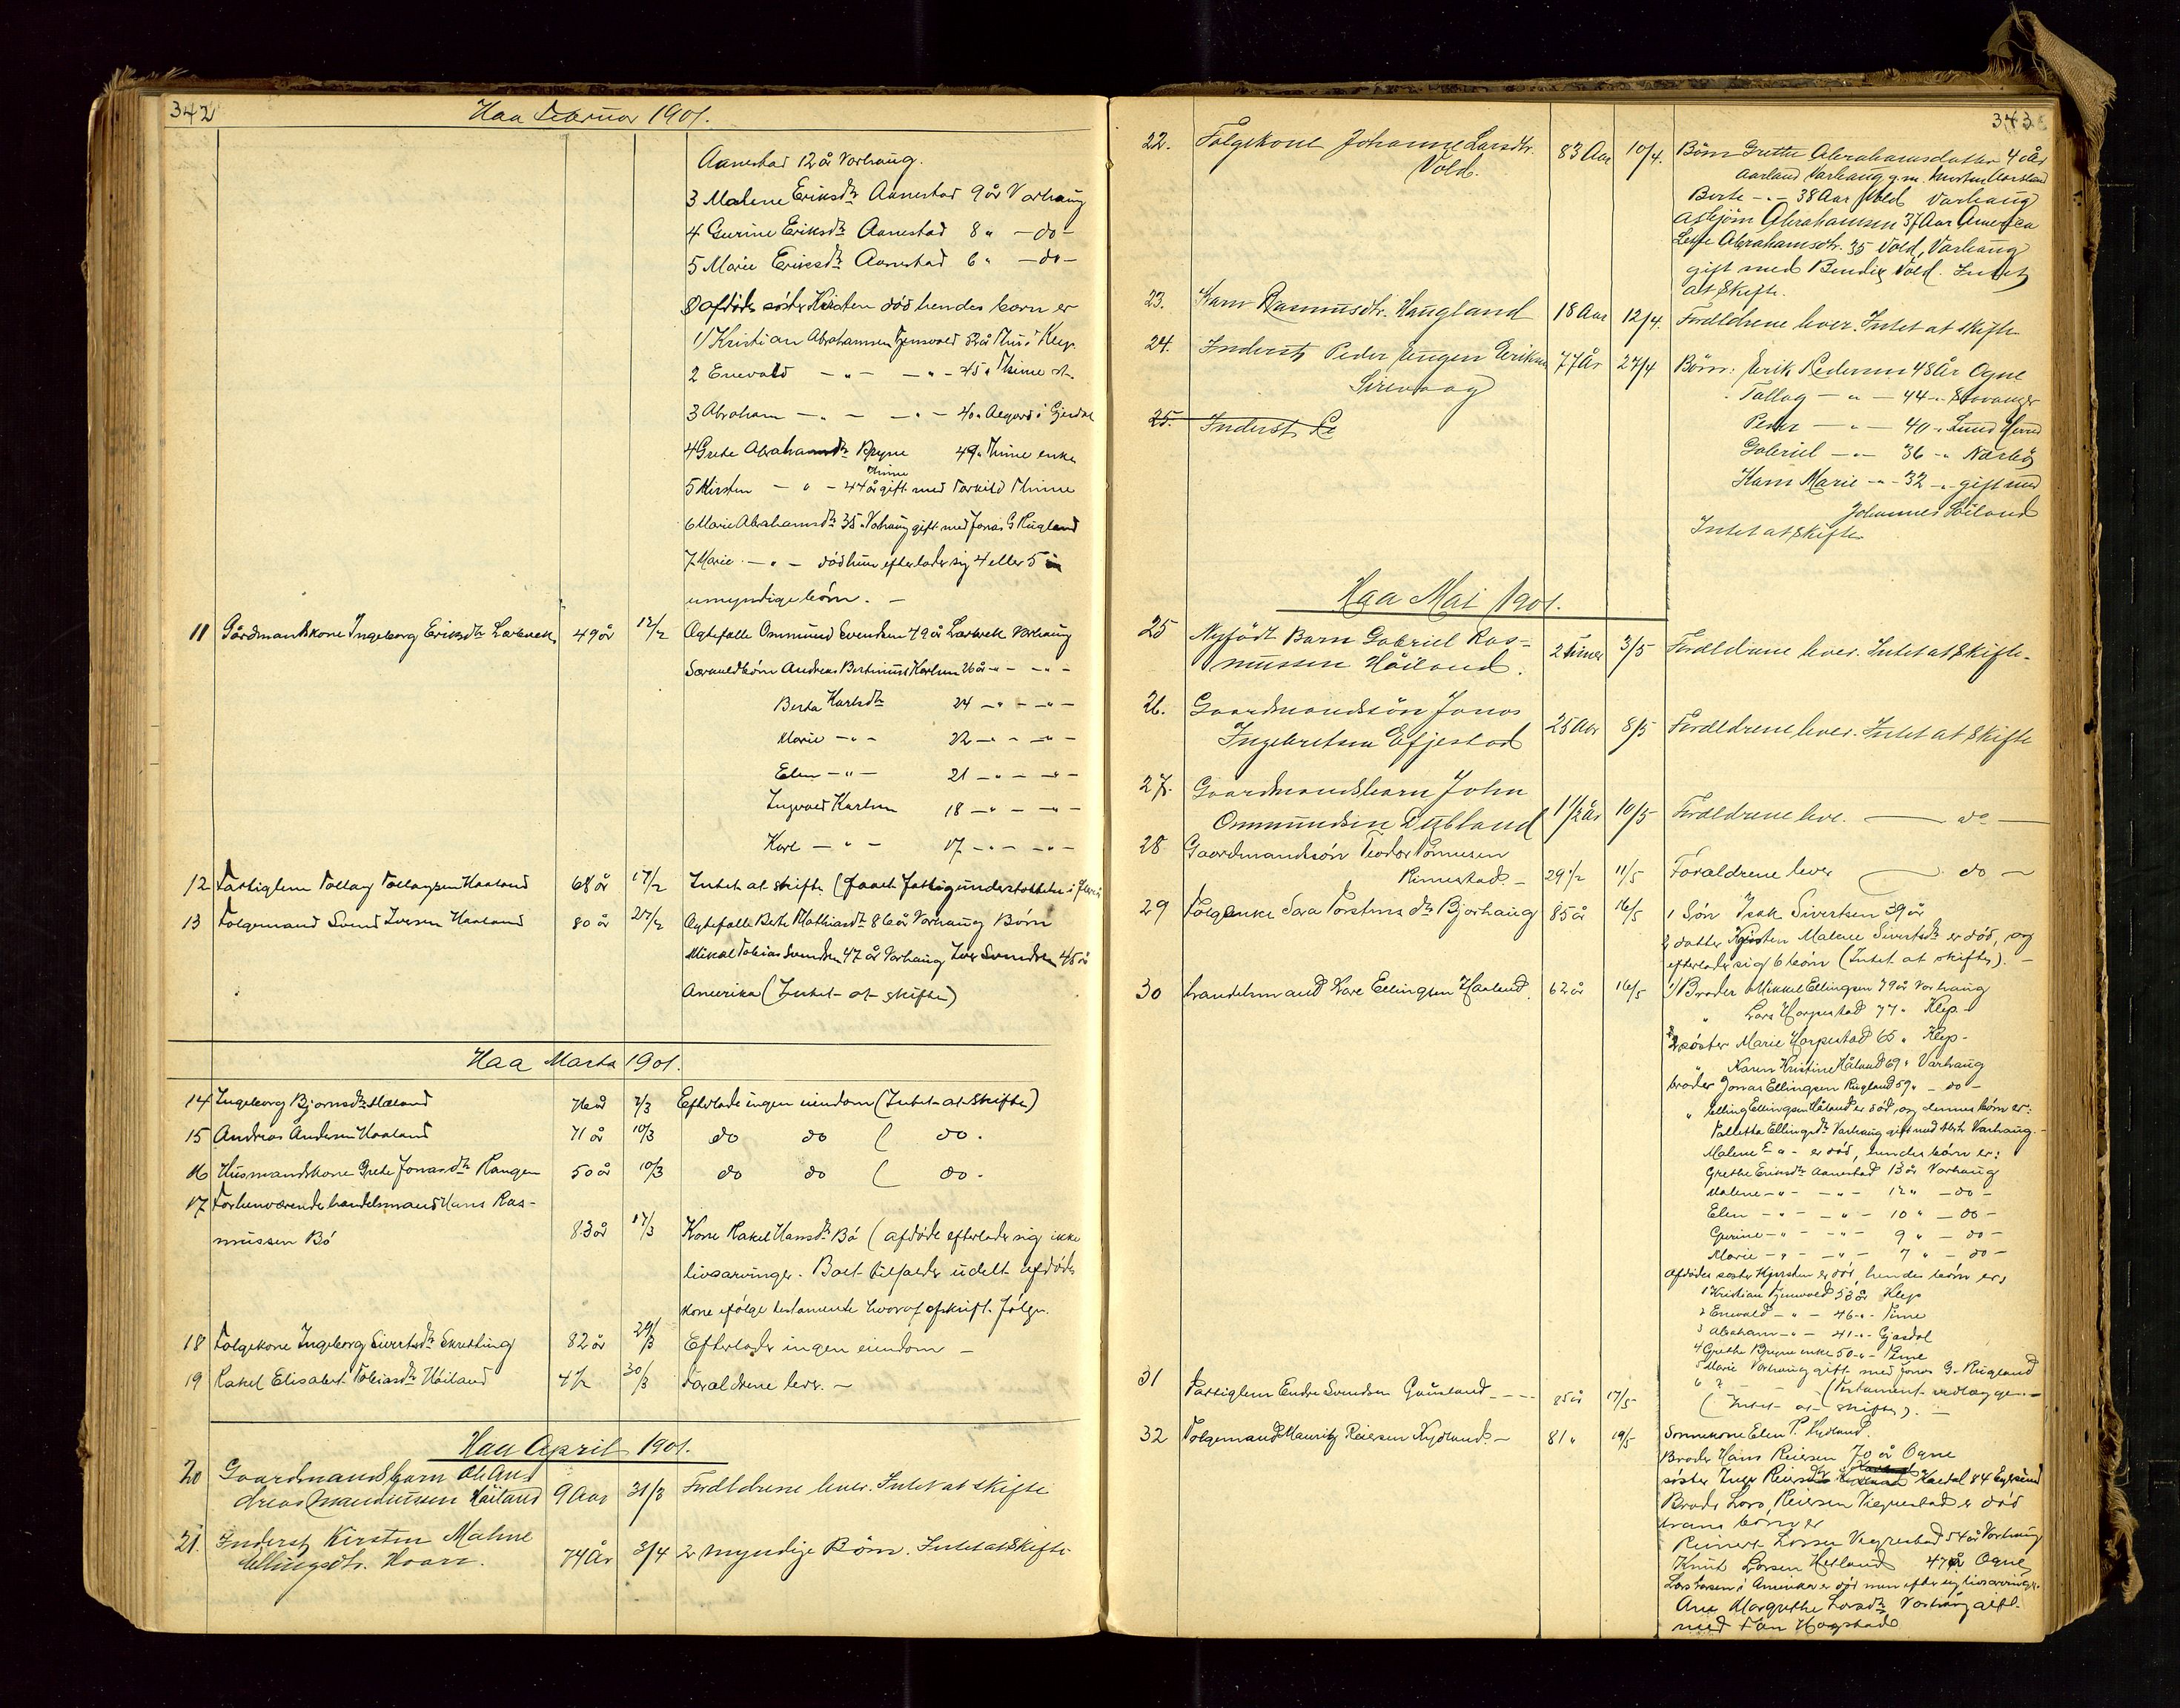 342
Haa Februar 1901.
Aanestad 12 år Varhaug.
3 Malene Eriksdtr Aanestad 9 år Varhaug
4 Gurine Eriksdtr Aanestad 8 " - do -
5 Marie Eriksdtr Aanestad 6 " - do -
8 Afdødes søster Kirsten død hendes børn er
1) Kristian Abrahamsen Tjensvold 52 å Thu i Klep.
2 Enevald - " - - " - 45 " Thime st.
3 Abraham - " - - " - 40 " Aalgård i Gjesdal
4 Grete Abrahamsdtr Bryne 49 " Thime enke
Thime
5 Kirsten - " - 44 år gift med Torkild Thime
6 Marie Abrahamsdtr 35 " Varhaug gift med Jonas G Rugland
7 Marie - " - død hun efterlader sig 4 eller 5
umyndige børn. -
11 Gårdmandskone Ingeborg Eriksdtr Lerbrek 49 år 12/2 Ægtefælle Ommund Svendsen 49 år Lerbrek Varhaug
Særkuldbørn Andreas Bertinius Karlsen 26 år - " - - " -
Berta Karlsdtr 24 - " - - " -
Marie - " - 22 - " - - " -
Elen - " - 21 - " - - " -
Ingvald Karlsen 18 - " - - " -
Karl - " - 17 - " - - " -
12 Fattiglem Tollag Tollagsen Haaland 68 år 17/2 Intet at skifte (Faaet Fattigunderstøttelse i flere
13 Folgemand Svend Iversen Haaland 80 år 27/2 Ægtefælle Berte Mathiasdtr 86 år Varhaug Børn
Mikal Tobias Svendsen 47 år Varhaug Iver Svendsen 45 år
Amerika (Intet at skifte)
Haa Marts 1901.
14 Ingeborg Bjornsdtr Hæland 76 år 7/3 Efterlade ingen eiendom (Intet at skifte)
15 Andreas Andersen Haaland 71 år 10/3 do do ( do.
16 Husmandskone Grete Jonasdtr Haugen 50 år 10/3 do do ( do.
17 Forhenværende handelsmand Hans Ras-
mussen Bø 83 år 17/3 Kone Rakel Hansdtr Bø (afdøde efterlader sig ikke
livsarvinger. Boet tilfalder udelt afdødes
kone ifølge testamente hvoraf afskrift følger.
18 Folgekone Ingeborg Sivertsdtr Skretting 82 år 29/3 Efterlader ingen eiendom -
19 Rakel Elisabet Tobiasdtr Høiland 4 1/2 30/3 Foraldrene lever. -
Haa April 1901.
20 Gaardmandsbarn Ole An-
dreas Mauritzsen Høiland 9 Aar 31/3 Foreldrene lever. Intet at skifte
21. Inderst Kirsten Malene
Ellingsdtr. Haar. 74 År 3/4 2 myndige Børn. Intet at skifte
343
22. Folgekone Johanne Larsdtr.
Vold. 83 Aar 10/4. Børn Grethe Abrahamsdatter 40 År
Aarland Varhaug g.m. Morten Aarsland
Berte - " - 38 Aar Vold Varhaug
Asbjørn Abrahamsen 37 Aar America
Abrahamsdtr. 35 Vold, Varhaug
gift med Bendix Vold. Intet
at skifte.
23. Karn Rasmusdtr. Haugland 18 Aar 12/4. Foreldrene lever. Intet at skifte
24. Inderst Peder Eugen Eriksen
Sirevaag 77 År 27/4 Børn: Erik Pedersen 48 År Ogne
Tallag - " - 44 - " Stavanger
Peder - " - 40 - " Lund Herred
Gabriel - " - 36 - " Nærbø
Karn Marie - " - 32 - " gift med
Johannes Høiland
Intet at skifte
25. Inderst Pe
Haa Mai 1901.
25 Nyfødt Barn Gabriel Ras=
mussen Høiland. 2 Timer 3/5 Foreldrene lever. Intet at skifte.
26. Gaardmandssøn Jonas
Ingebretsen Efjestad 25 Aar 8/5 Foreldrene lever. Intet at skifte
27. Gaardmandsbarn John
Ommundsen Dubland 1 1/2 År 10/5 Foreldrene leve. — do —
28 Gaardmandssøn Teodor Tønnesen
Rimestad. - 29 1/2 11/5 Foraldrene lever — do —
29 Folgeenke Sara Torstensdtr Bjorhaug 85 år 16/5 1 Søn Isak Sivertsen 39 år
2 datter Kirsten Malene Sivertsdtr er død, og
efterlader sig 6 børn (Intet at skifte). -
30 Handelsmand Lars Ellingsen Haaland. 62 år 16/5 1) Broder Mikkel Ellingsen 79 år Varhaug
" Lars Horpestad 77 " Klep. -
2 søster Marie Horpestad 65 " Klep -
" Karen Kristine Håland 69 " Varhaug
broder Jonas Ellingsen Rugland 59 " - do -
" Elling Ellingsen Håland er død, og dennes børn er:
Talletta Ellingsdtr Varhaug gift med Varhaug -
Malene E - " - er død, hendes børn er:
Grethe Eriksdtr Aanestad 13 år Varhaug
Malene - " - - " - 12 " - do -
Elen - " - - " - 10 " - do -
Gurine - " - - " - 9 " - do -
Marie - " - - " - 7 " - do -
Afdødes søster Kjersten er død, hendes børn er,
1 Kristian Tjensvold 53 år Klep
2 Enevald - " - 46 - " - Time
3 Abraham - " - 41 - " - Gjesdal
4 Grethe Bryne enke 50 - " - Time
5 Marie Varhaug gift med Jonas G. Rugland
6 ? - - (Testament vedlægges. -
(Intet at skifte). -
31 Fattiglem Endre Svendsen Gausland - - - - 85 år 17/5
32 Folgemand Mauritz Reiersen Nydland. - 81 " 19/5 Sønnekone Elen P. Nydland.
Broder Hans Reiersen 70 år Ogne
søster Inger Reiersdtr Kaedal 84 Egersund
Broder Lars Reiersen Viegrestad er død
hans børn er
Reinert Larsen Viegrestad 54 år Varhaug
Knut Larsen Hetland 47 år Ogne
Lars Larsen i Amerika er død men efter sig livsarvinger.
Ane Margrethe Larsdtr Varhaug gift
med Tan Hogstad